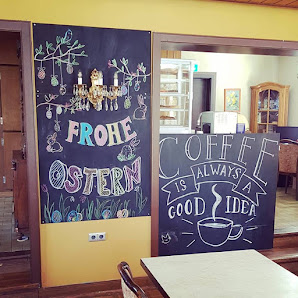 FROHE
OSTERN
COFFEE
IS ALWAYS A
GOOD IDEA